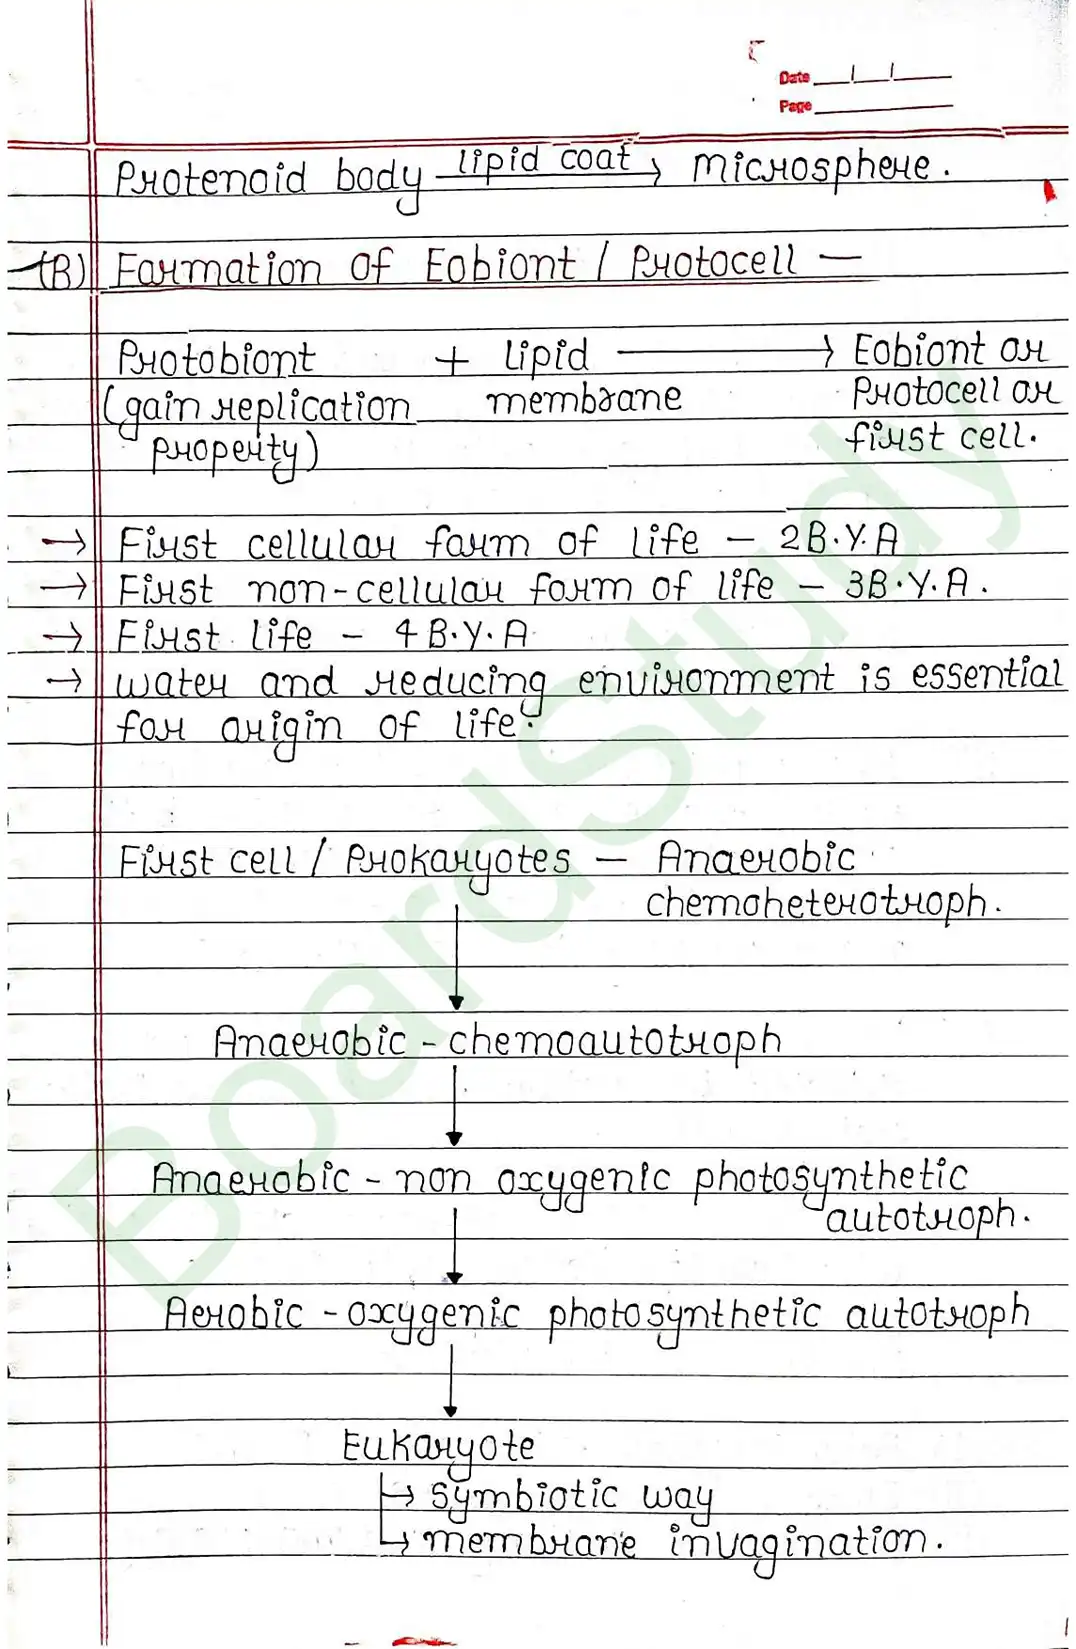 Date
Page
Protenoid body lipid coat → microsphere.
(B) Formation of Eobiont / Protocell —
Protobiont + lipid ⟶ Eobiont or
(gain replication membrane Protocell or
property) first cell.
→ First cellular form of life – 2B.Y.A
→ First non-cellular form of life – 3B.Y.A.
→ First life – 4 B.Y.A
→ water and reducing environment is essential
for origin of life.
First cell / Prokaryotes — Anaerobic
chemoheterotroph.
↓
Anaerobic - chemoautotroph
↓
Anaerobic - non oxygenic photosynthetic
autotroph.
↓
Aerobic - oxygenic photosynthetic autotroph
↓
Eukaryote
↳ symbiotic way
↳ membrane invagination.
BoardStudy